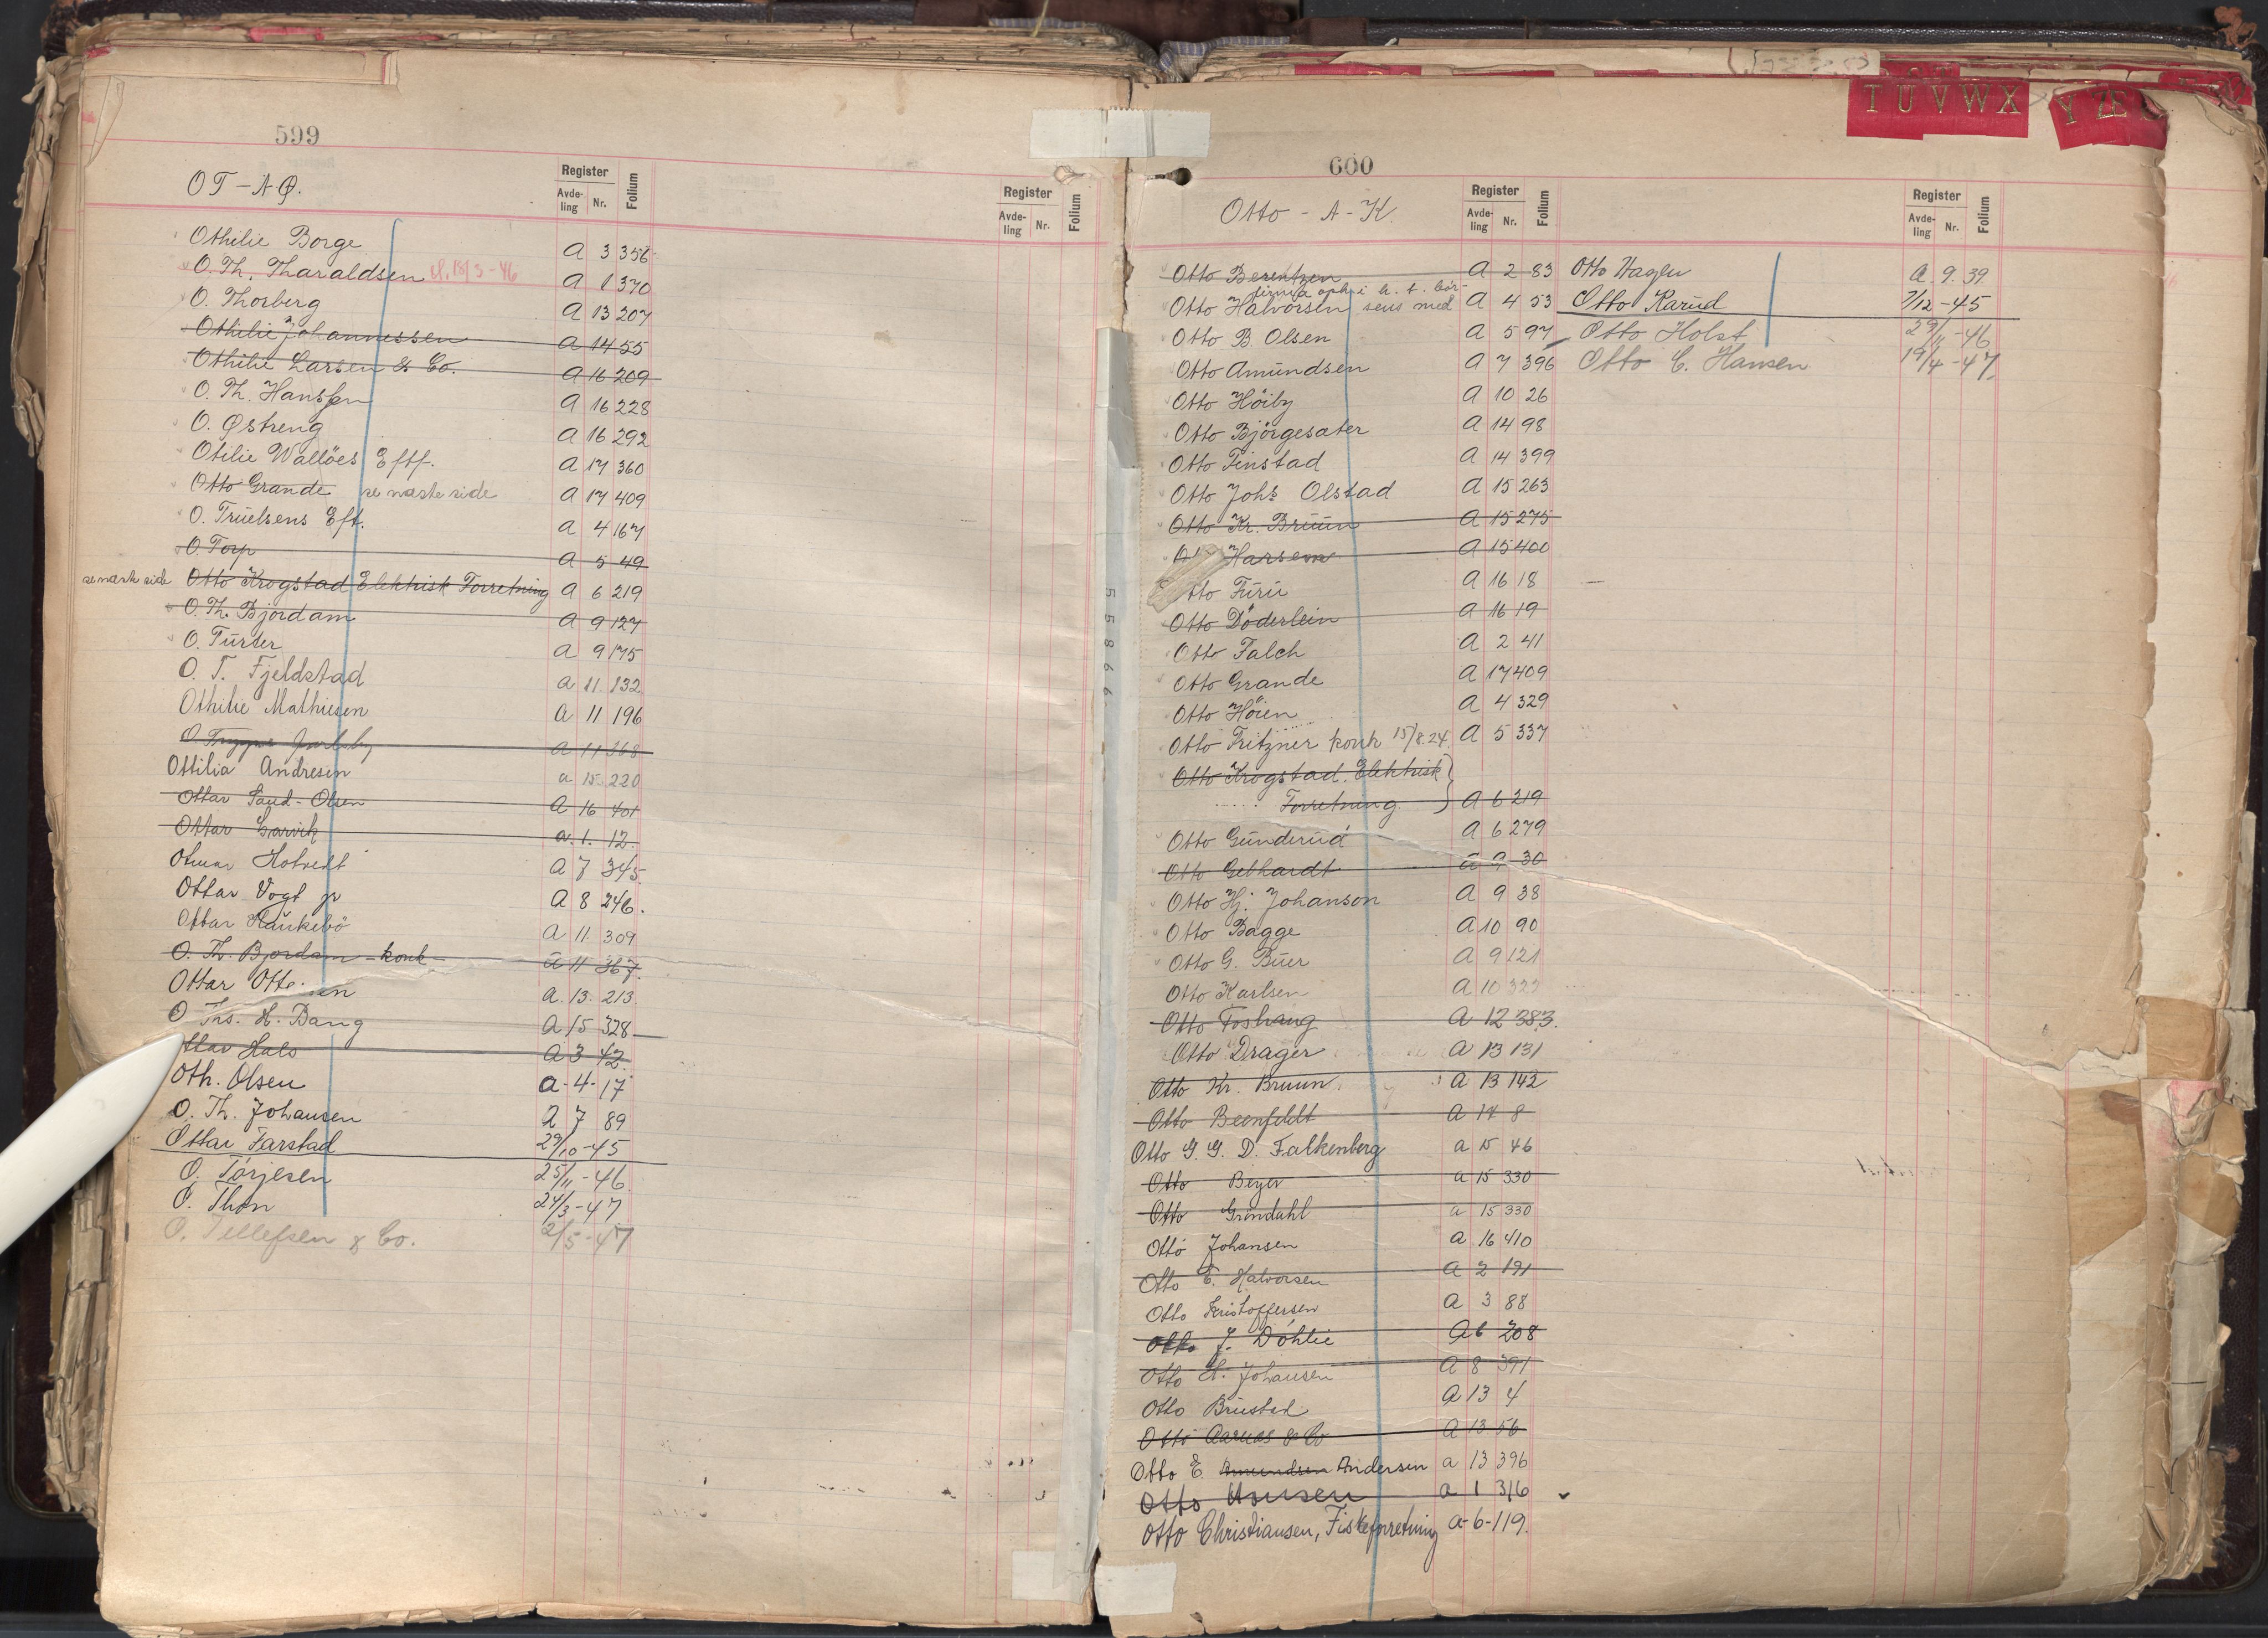 599
OT - A-Ø.
Register
Avde-
ling
Nr.
Folium
Register
Avde-
ling
Nr.
Folium
Othilie Borge A 3 356
O. Th. Tharaldsen sl. 18/3-46 A 1 370
O. Thorberg A 13 207
Othilie Johannessen A 14 55
Othilie Larsen & Co. A 16 209
O. Th. Hanssen A 16 228
O. Østreng A 16 292
Otilie Wallöes Eftf. A 17 360
Otto Grande se næste side A 17 409
O. Truelsens Eft. A 4 167
O. Torp A 5 49
se næste side Otto Krogstad Elektrisk Forretning A 6 219
O. Th. Bjordam A 9 127
O. Turter A 9 175
O. T. Fjeldstad a 11. 132
Othilie Mathiesen A 11 196
O. Trygve A 11 368
Ottilia Andresen a 15. 220
Ottar Saud-Olsen A 16 401
Ottar Larvik a. 1. 12.
Otmar Hotvedt A 7 345
Ottar Vogt jr A 8 246.
Ottar Haukebö A 11. 309
O. Th. Bjordam - konk - a 11 367.
Ottar Ottesen a. 13. 213.
O Ths. H. Bang A 15 328
ttar Hals A 3 42.
Oth. Olsen a-4-17
O. Th. Johansen 2 7 89
Ottar Farstad 29/10-45
O. Torjesen 25/11-46
O. Thon 24/3-47
O. Tellefsen & Co. 2/5-47
600
Otto - A-K.
Register
Avde-
ling
Nr.
Folium
Register
Avde-
ling
Nr.
Folium
TUVWX
Y
55866
Otto Berentzen A 2 83
firma oph. i h. t.
Otto Halvorsen sens med A 4 53
Otto B Olsen A 5 97
Otto Amundsen A 7 396
Otto Höiby A 10 26
Otto Björgesæter A 14 98
Otto Finstad A 14 399
Otto Johs Olstad A 15 263
Otto Kr. Bruun A 15 275
Harsem A 15 400
tto Furu A 16 18
Otto Döderlein A 16 19
Otto Falch A 2 41
Otto Grande A 17 409
Otto Höien A 4 329
Otto Fritzner konk 15/8.24. A 5 337
Otto Krogstad. Elektrisk
Forretning A 6 219
Otto Gunderud A 6 279
Otto Gebhardt a 9 30
Otto Hj. Johanson A 9 38
Otto Bagge A 10 90
Otto G. Buer A 9 121
Otto Karlsen A 10 323
Otto Foshaug A 12 383.
Otto Drager A 13 131
Otto Kr. Bruun A 13 142
Otto Beenfeldt A 14 8
Otto G. G. D. Falkenberg a 15 46
Otto Beyer a 15 330
Otto Gröndahl a 15 330
Otto Johansen a 16 410
Otto E. Halvorsen A 2 191
Otto Kristoffersen A 3 88
Otto J. Döhlie A 6 208
Otto H. Johansen A 8 391
Otto Brustad A 13 4
Otto Aarnæs & Co A 13 56
Otto E. Amundsen Andersen a 13 396
Otto Hansen a 1 316
Otto Christiansen, Fiskeforretning a-6-119.
Otto Hagen a. 9. 39
Otto Karud 7/12-45
Otto Holst 29/11-46
Otto C. Hansen 19/4-47